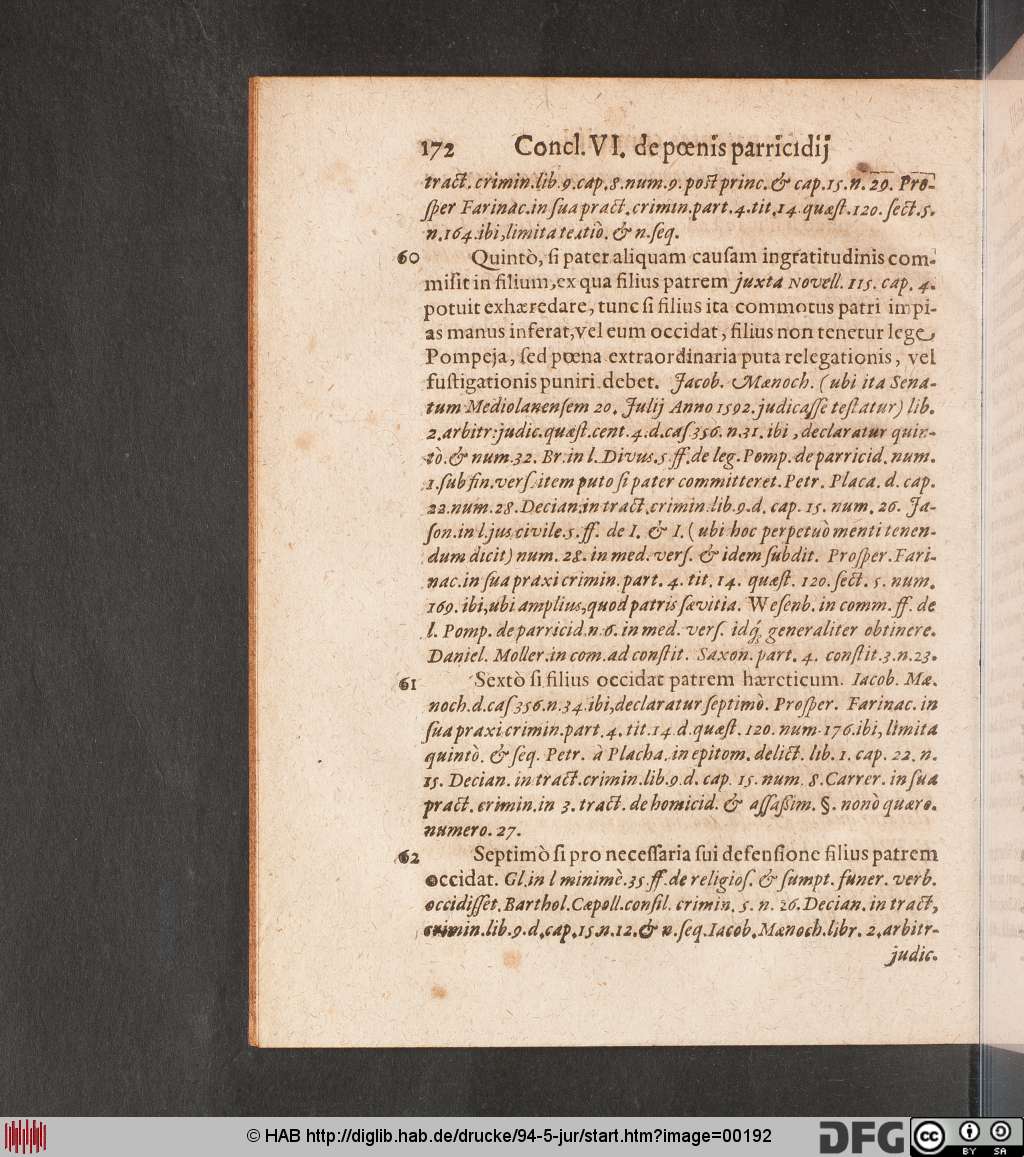 172 Concl. VI. de pœnis parricidij
tract. crimin. lib. 9. cap. 8. num. 9. post princ. & cap. 15. n. 29. Pro-
ſper Farinac. in ſua pract. crimin. part. 4. tit. 14. quæſt. 120. ſect. 5.
n. 164. ibi, limita &n.ſeq.
60 Quintò, ſi pater aliquam cauſam ingratitudinis com-
miſit in filium, ex qua filius patrem juxta Novell. 115. cap. 4.
potuit exhæredare, tunc ſi filius ita commotus patri impi-
as manus inferat, vel eum occidat, filius non tenetur lege
Pompeja, ſed pœna extraordinaria puta relegationis, vel
fuſtigationis puniri debet. Jacob. Mænoch. (ubi ita Sena-
tum Mediolanenſem 20. Julij Anno 1592. judicaſſe teſtatur) lib.
2. arbitr: judic. quæſt. cent. 4. d. caſ 356. n. 31. ibi, declaratur quin-
tò. & num. 32. Br. in l. Divus. 5. ff. de leg. Pomp. de parricid. num.
1. ſub fin. verſ. item puto ſi pater committeret. Petr. Placa. d. cap.
22. num. 28. Decian. in tract. crimin. lib. 9. d. cap. 15. num. 26. Ja-
ſon. in l. jus civile. 5. ff. de I. & I. (ubi hoc perpetuò menti tenen-
dum dicit) num. 28. in med. verſ. & idem ſubdit. Proſper. Fari-
nac. in ſua praxi crimin. part. 4. tit. 14. quæſt. 120. ſect. 5. num.
169. ibi, ubi amplius, quod patris ſævitia. Weſenb. in comm. ff. de
l. Pomp. de parricid. n. 6. in med. verſ. idq́; generaliter obtinere.
Daniel. Moller. in com. ad conſtit. Saxon. part. 4. conſtit. 3. n. 23.
61 Sextò ſi filius occidat patrem hæreticum. Iacob. Mæ.
noch. d. caſ 356. n. 34. ibi, declaratur ſeptimò. Proſper. Farinac. in
ſua praxi crimin. part. 4. tit. 14 d. quæſt. 120. num. 176. ibi, limita
quintò. & ſeq. Petr. à Placha. in epitom. delict. lib. 1. cap. 22. n.
15. Decian. in tract. crimin. lib. 9. d. cap. 15. num. 8. Carrer. in ſua
pract. crimin. in 3. tract. de homicid. & aſſaßim. §. nonò quæro.
numero. 27.
62 Septimò ſi pro neceſſaria ſui defenſione filius patrem
occidat. Gl. in l minimè. 35. ff. de religioſ. & ſumpt. funer. verb.
occidiſſet. Barthol. Cæpoll. conſil. crimin. 5. n. 26. Decian. in tract,
crimin. lib. 9. d. cap. 15. n. 12. & n. ſeq. Iacob. Mænoch. libr. 2. arbitr-
judic.
© HAB http://diglib.hab.de/drucke/94-5-jur/start.htm?image=00192
DFG
cc BY SA